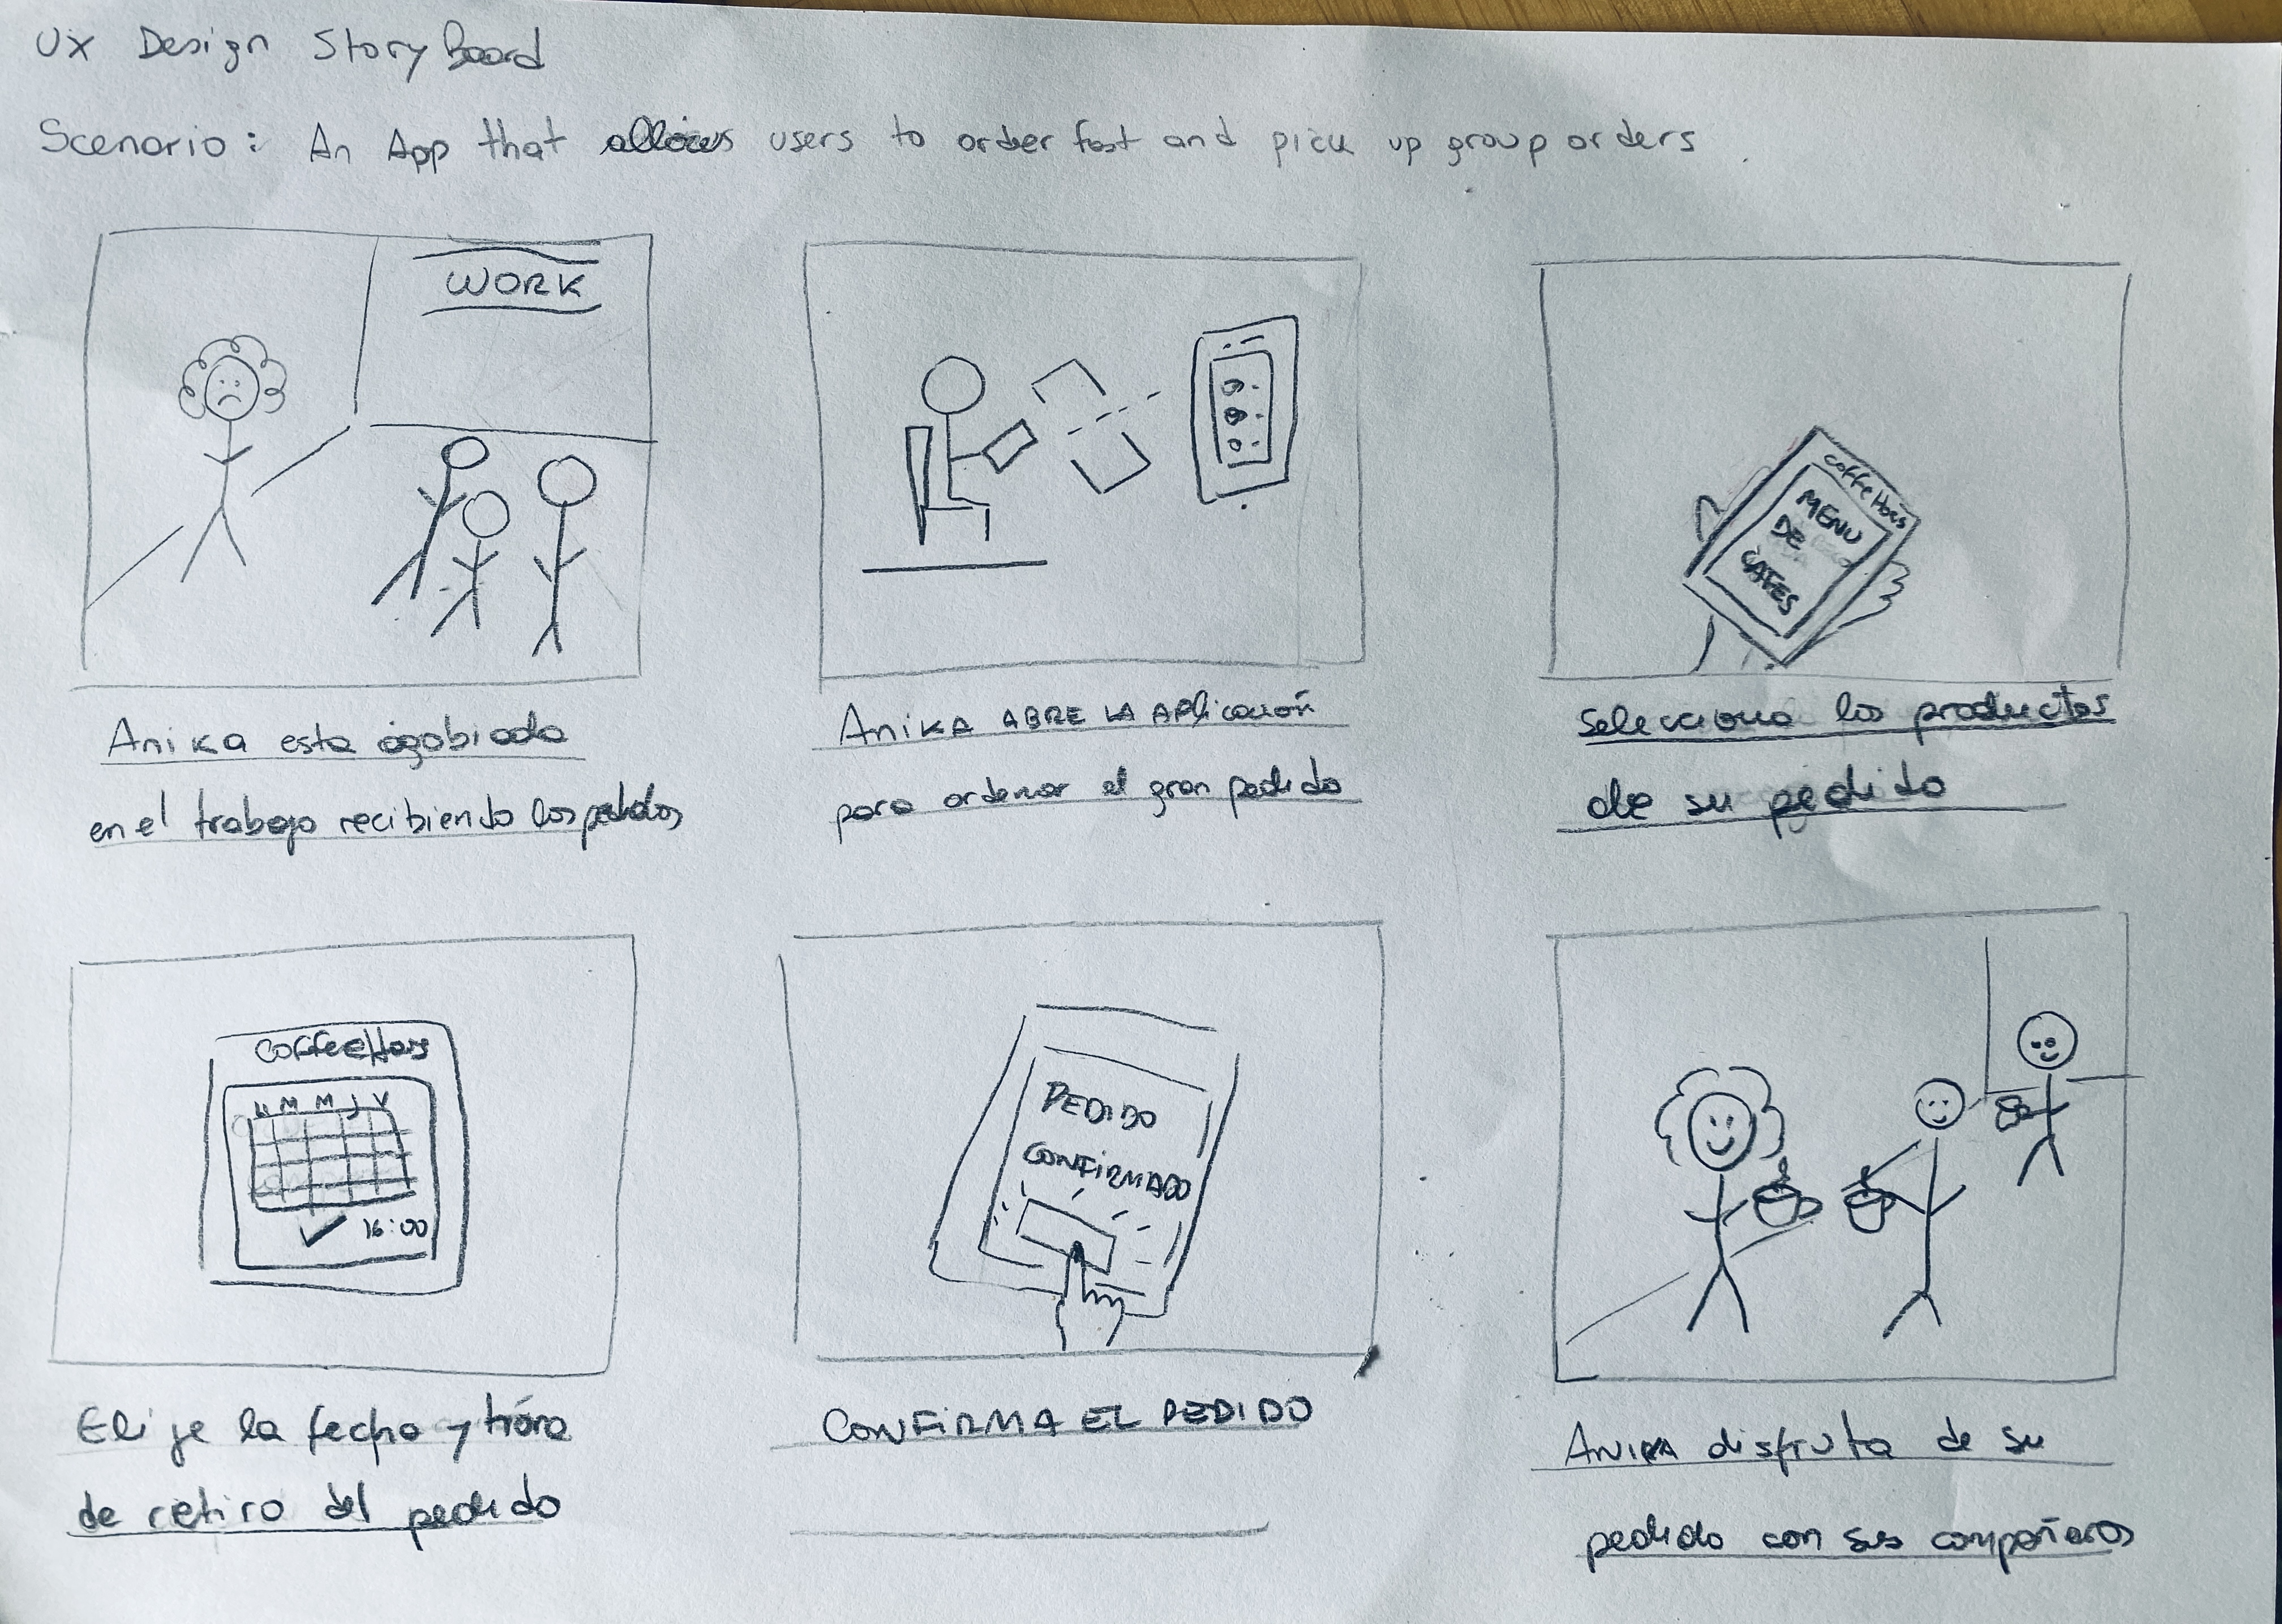 UX Design StoryBoard
Scenario: An App that allows users to order fast and pick up group orders.
WORK
Anika esta agobiada
en el trabajo recibiendo los pedidos
ANIKA ABRE LA APlicación
para ordenar el gran pedido
coffe Hous
MENU
DE
CAFES
Selecciona los productos
de su pedido
CoffeeHous
L M M J V
16:00
Elije la fecha y hora
de retiro del pedido
PEDIDO
CONFIRMADO
CONFIRMA EL PEDIDO
ANIKA disfruta de su
pedido con sus compañeros